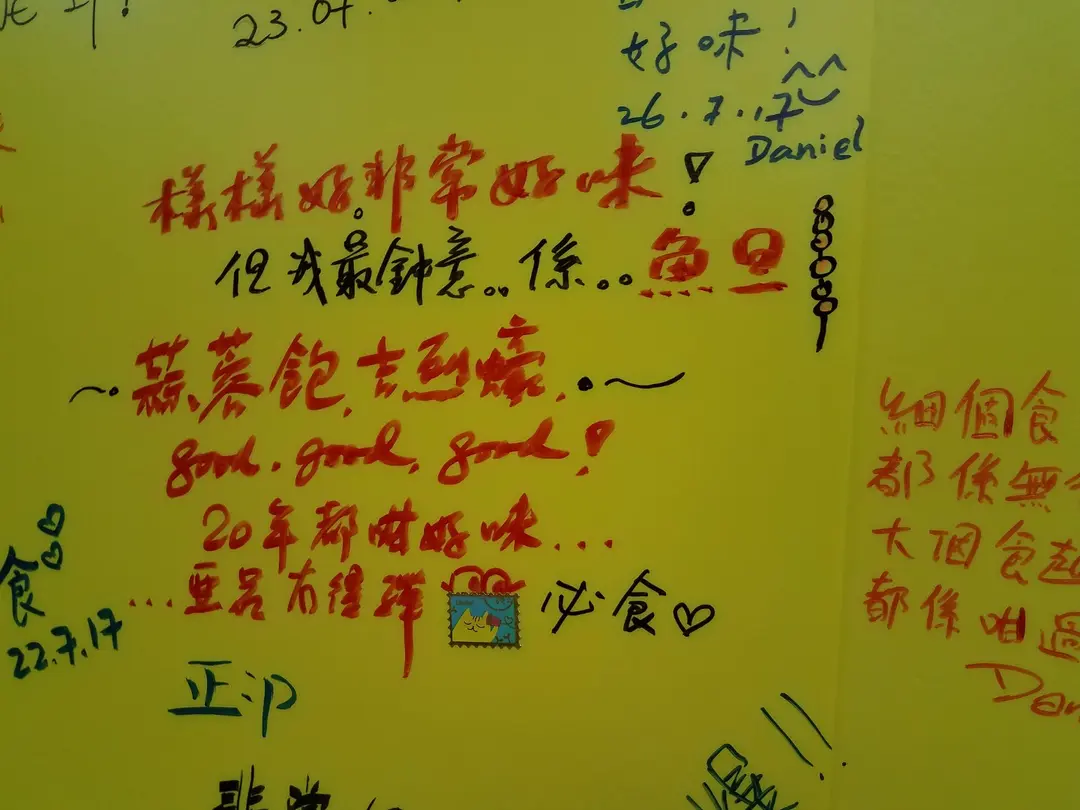 23.07.
好味!
26.7.17
Daniel
樣樣好非常好味!
但我最鍾意..係..魚旦
~.蒜蓉飽,吉烈蠔.~
good.good,good!
20年都咁好味...
...亜呂有得彈
必食♡
食
22.7.17
正:p
非常
細個食
都係無
大個食
都係咁